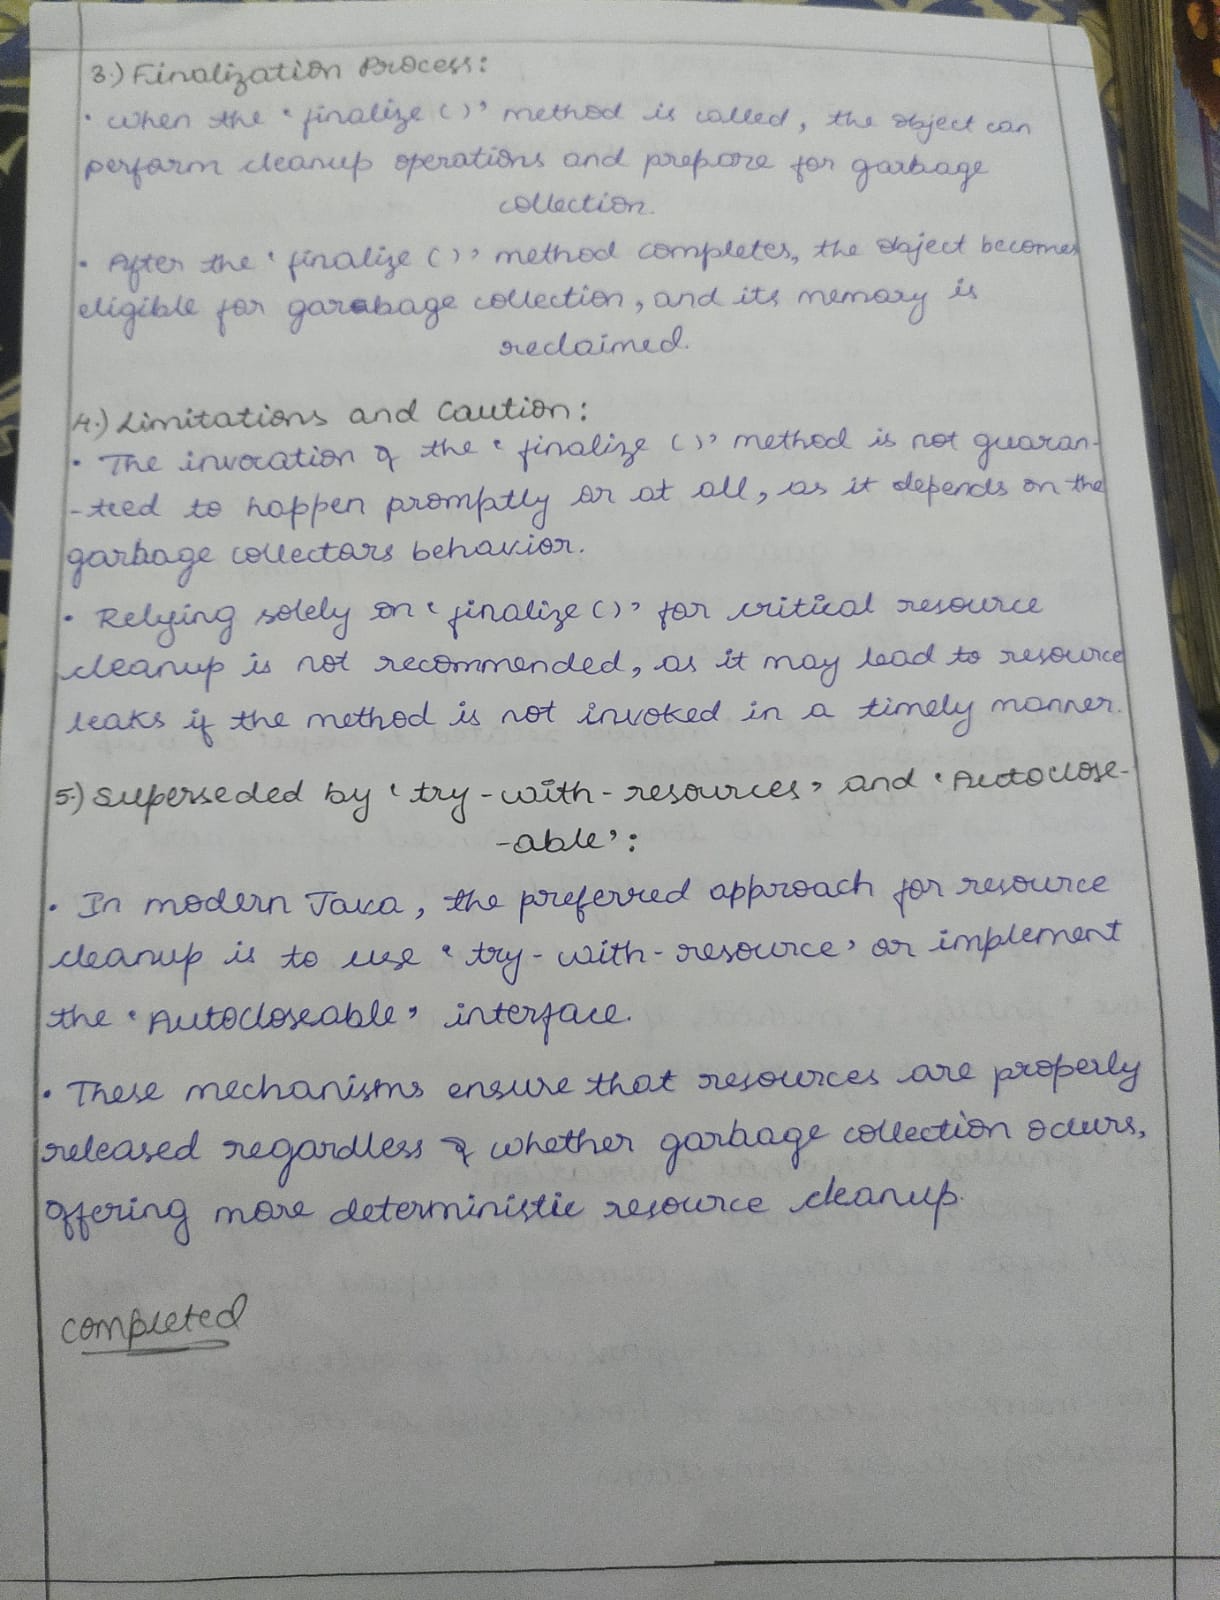 3.) Finalization Process:
• When the 'finalize ()' method is called, the object can
perform cleanup operations and prepare for garbage
collection.
• After the 'finalize ()' method completes, the object becomes
eligible for garabage collection, and its memory is
reclaimed.
4.) Limitations and Caution:
• The invocation of the 'finalize ()' method is not guaran-
-teed to happen promptly or at all, as it depends on the
garbage collectors behavior.
• Relying solely on 'finalize ()' for critical resource
cleanup is not recommended, as it may lead to resource
leaks if the method is not invoked in a timely manner.
5.) Superseded by 'try-with-resources' and 'Autoclose-
-able':
• In modern Java, the preferred approach for resource
cleanup is to use 'try-with-resource' or implement
the 'Autocloseable' interface.
• These mechanisms ensure that resources are properly
released regardless of whether garbage collection occurs,
offering more deterministic resource cleanup.
completed